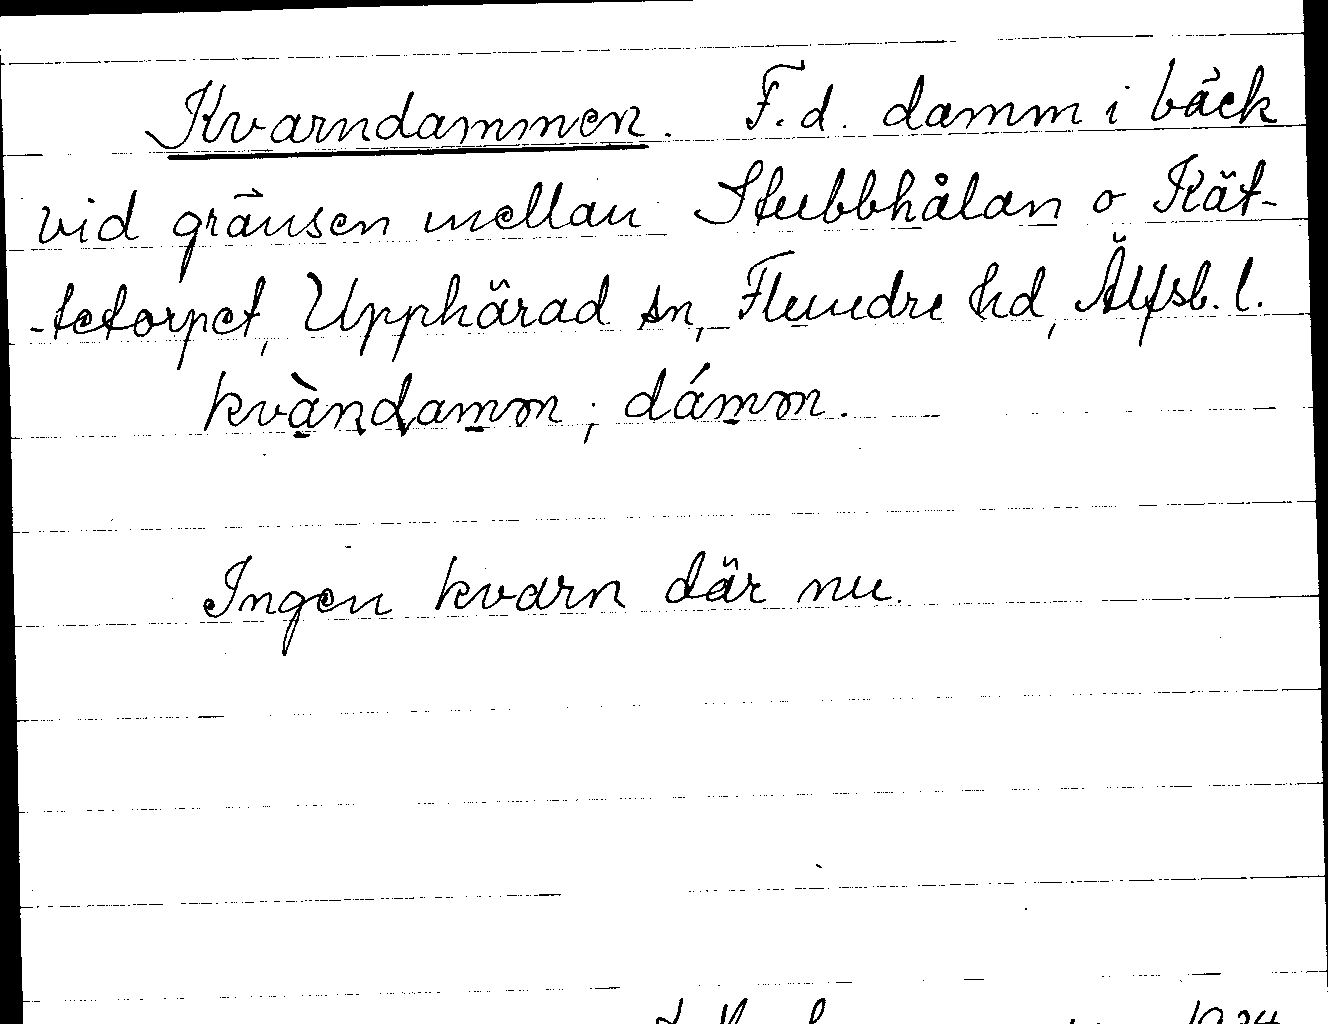 Kvarndammen. F.d. damm i bäck
vid gränsen mellan Stubbhålan o Kät-
-tetorpet, Upphärad sn, Flundre hd, Älfsb. l.
kvàndamm; dámm.
Ingen kvarn där nu.
1934